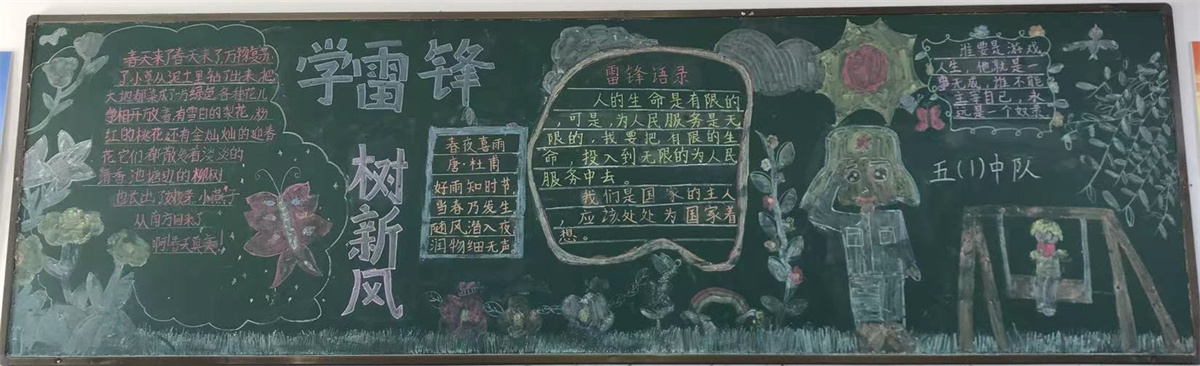 春天来了春天来了万物复苏
了小草从泥土里钻了出来把
大地都染成了为绿色各种花儿
争相开放着有雪白的梨花,粉
红的桃花还有金灿灿的迎春
花它们都散发着淡淡的
清香池塘边的柳树
也长出了嫩芽小燕子
从南方回来了
啊春天真美!
学雷锋
树新风
春夜喜雨
唐·杜甫
好雨知时节,
当春乃发生
随风潜入夜
润物细无声
雷锋语录
人的生命是有限的
,可是,为人民服务是无
限的,我要把有限的生
命,投入到无限的为人民
服务中去。
我们是国家的主人
,应该处处为国家着
想。
谁要是游戏
人生,他就是一
事无成,谁不能
主宰自己,永
远是一个奴隶
五(1)中队